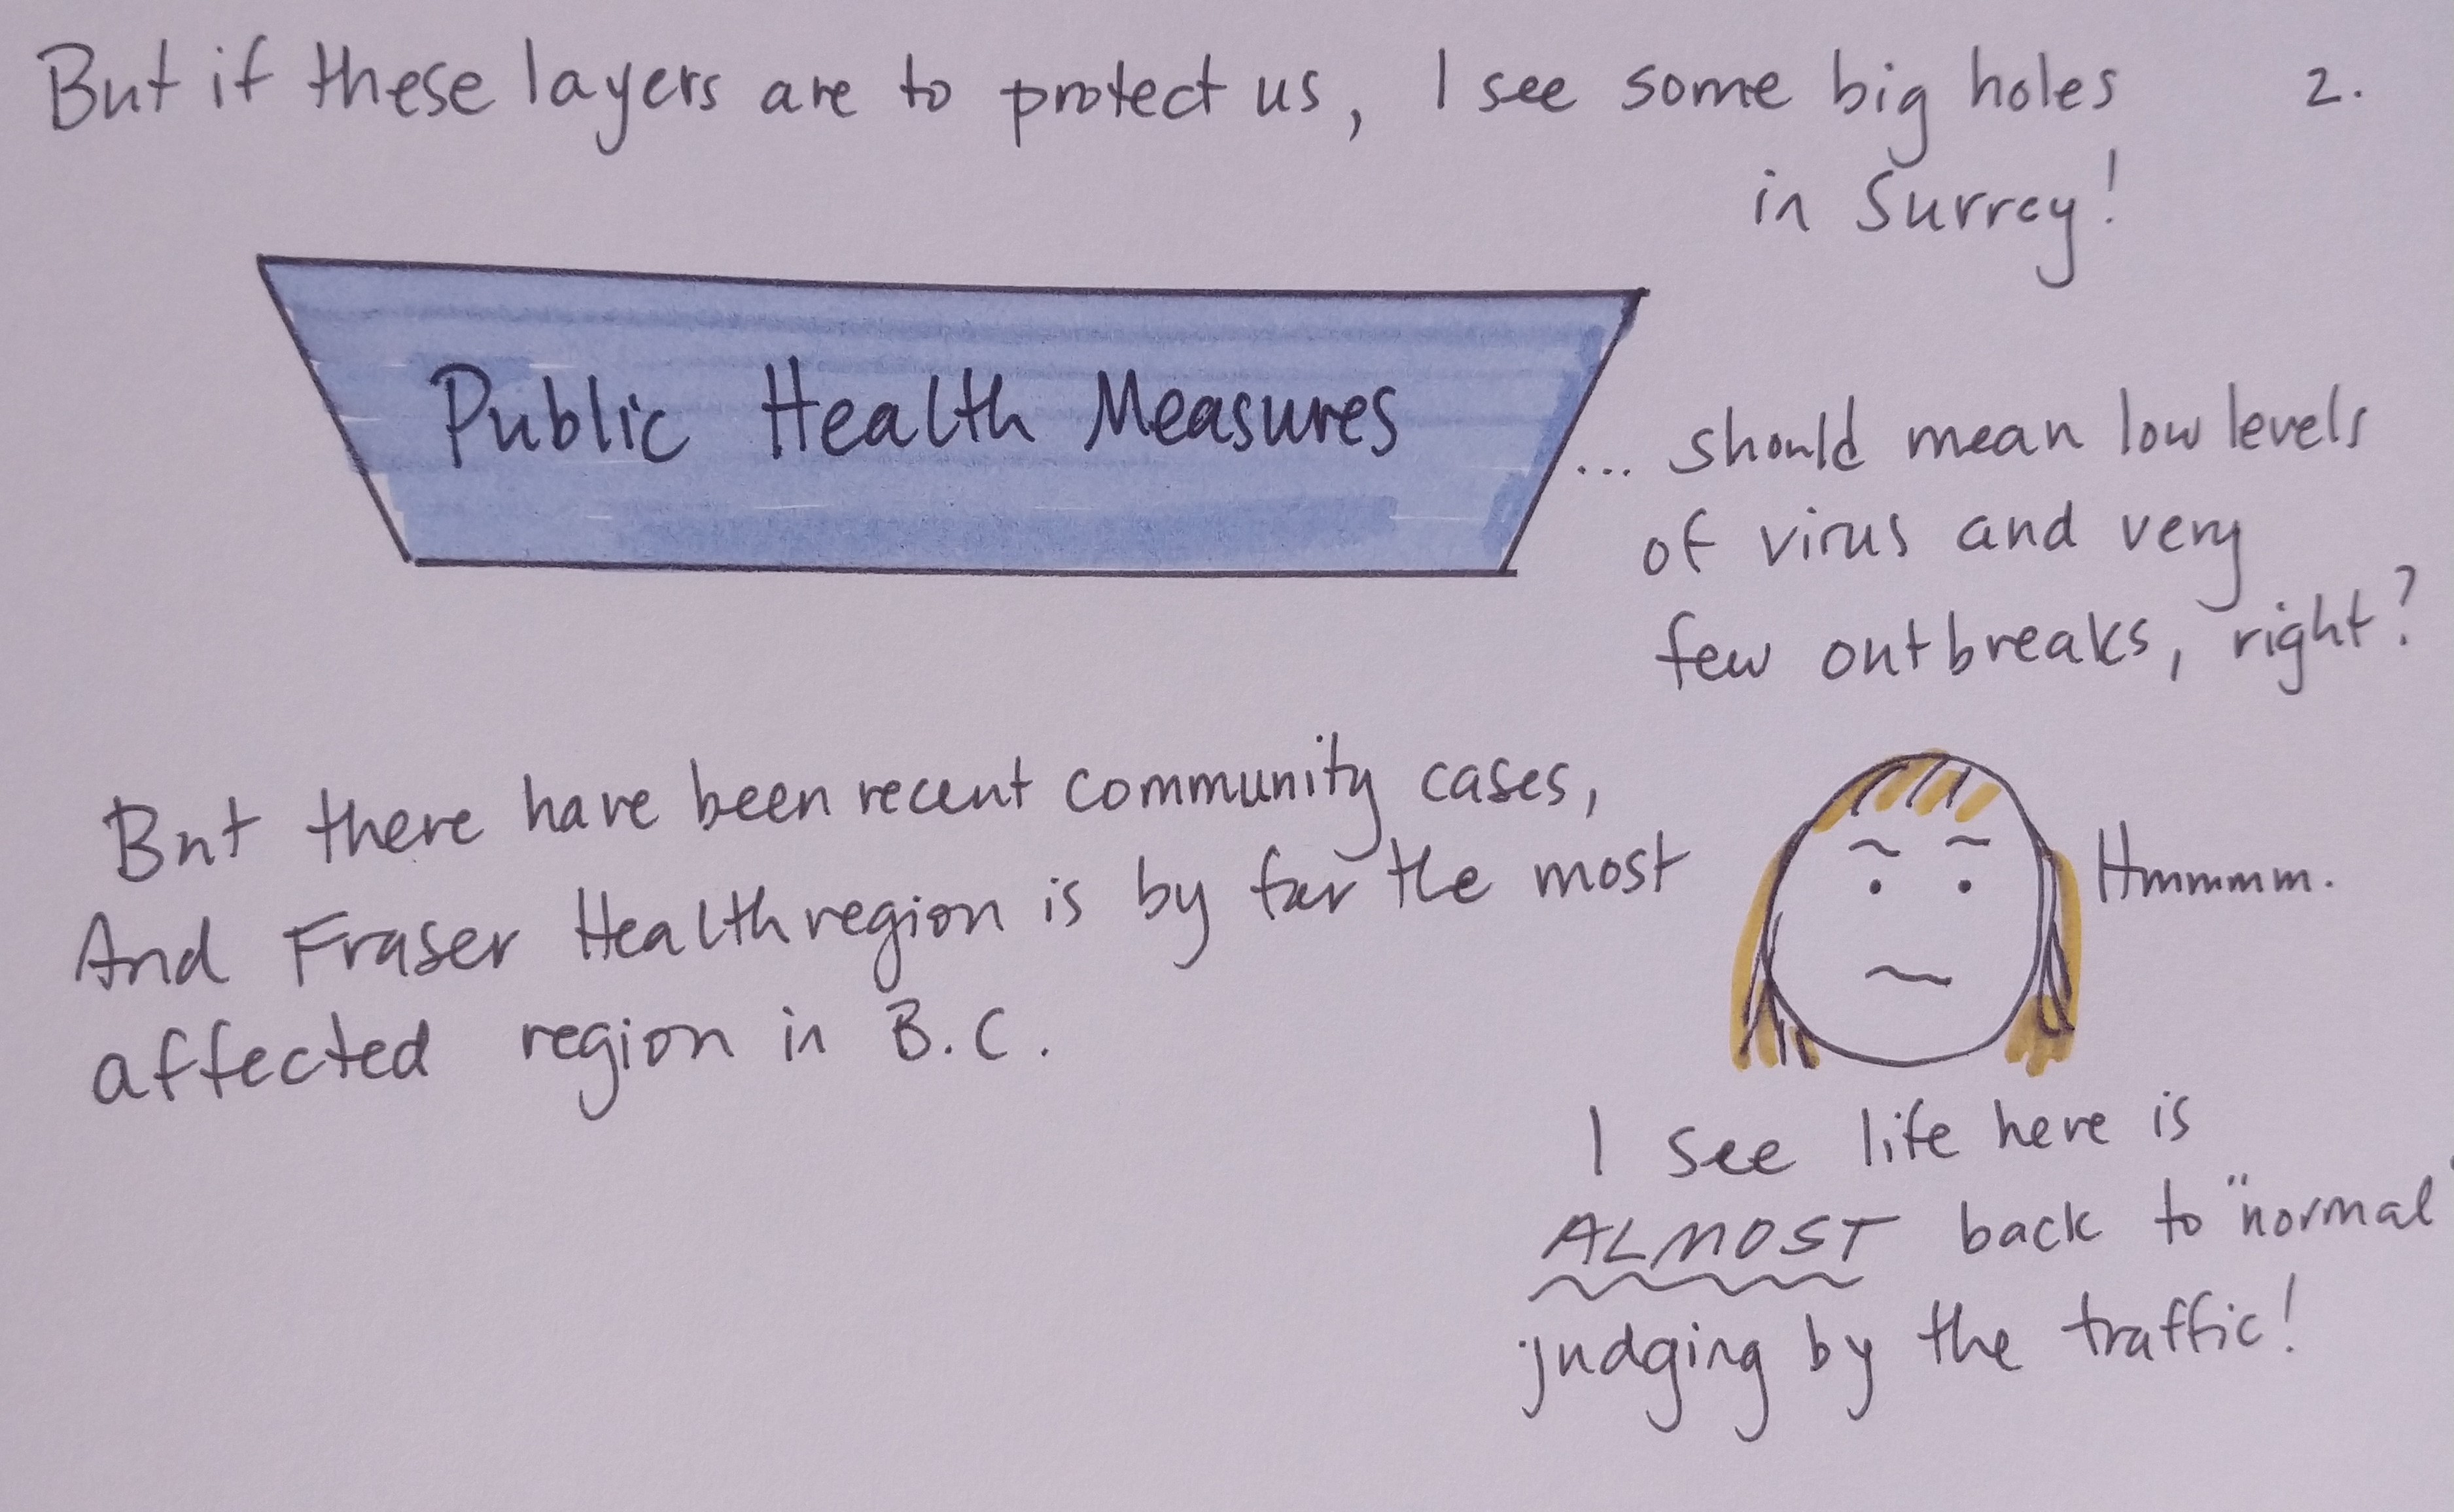 But if these layers are to protect us, I see some big holes
2.
in Surrey!
Public Health Measures
... should mean low levels
of virus and very
few outbreaks, right?
But there have been recent community cases,
And Fraser Health region is by far the most
affected region in B.C.
Hmmmm.
I see life here is
ALMOST back to "normal"
judging by the traffic!